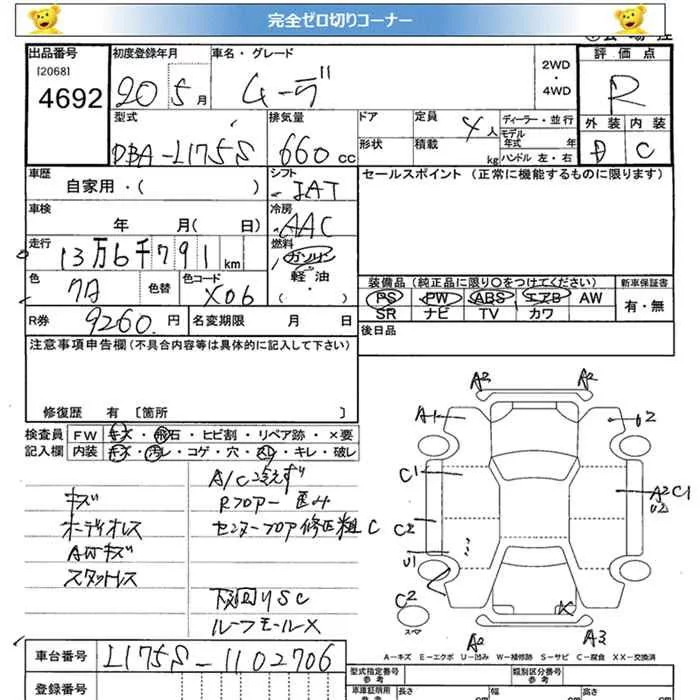 完全ゼロ切りコーナー
出品番号 初度登録年月 車名・グレード 2WD・4WD 評価点
[2068] 4692 20 5月 ムーヴ R
型式 排気量 ドア 定員 4人 ディーラー・並行 外装 内装
DBA-L175S 660cc 形状 積載 kg モデル年式 年 ハンドル 左・右 D C
車歴 シフト セールスポイント(正常に機能するものに限ります)
自家用・( ) IAT
車検 冷房
年 月( 日) AAC
走行 燃料
13万6千791km ガソリン
色 色替 色コード 軽油 装備品(純正品に限り○をつけてください) 新車保証書
7A X06 ・( ) PS PW ABS エアB AW 有・無
SR ナビ TV カワ
R券 9260円 名変期限 月 日 後日品
注意事項申告欄(不具合内容等は具体的に記入して下さい)
修復歴 有 [箇所 ]
検査員 FW キズ・飛石・ヒビ割・リペア跡・×要
記入欄 内装 キズ・汚レ・コゲ・穴・スレ・キレ・破レ
A/C冷えず
キズ Rフロアー凹み
オーディオレス センターフロア修正粗 C
AWキズ
スタットレス
下回りSC
ルーフモールX
A2 A2
A1 U2
C1 A2 C1
U2
C2
U1
C2
スペア
A2 A3
A-キズ E-エクボ U-凹み W-補修跡 S-サビ C-腐食 XX-交換済
車台番号 L175S-1102706 型式指定番号 参考 類別区分番号 参考
登録番号 車庫証明用 参考 長さ cm 幅 cm 高さ cm